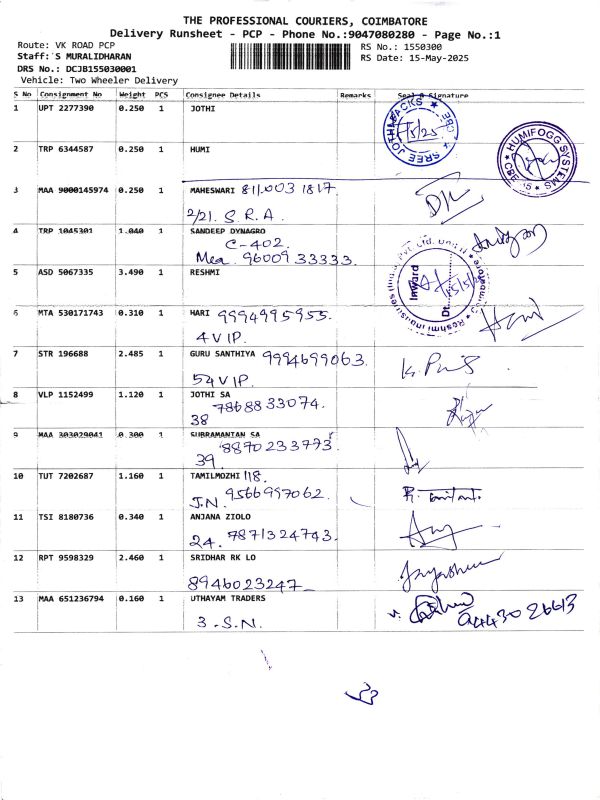 THE PROFESSIONAL COURIERS, COIMBATORE
Delivery Runsheet - PCP - Phone No.:9047080280 - Page No.:1
Route: VK ROAD PCP
RS No.: 1550300
Staff: S MURALIDHARAN
RS Date: 15-May-2025
DRS No.: DCJB155030001
Vehicle: Two Wheeler Delivery
S No Consignment No Weight PCS Consignee Details Remarks Seal & Signature
1 UPT 2277390 0.250 1 JOTHI
SREE JOTHI PACKS ★ CBE ★
2 TRP 6344587 0.250 1 HUMI
HUMIFOGG SYSTEMS ★ CBE
3 MAA 9000145974 0.250 1 MAHESWARI 811.003 1817.
2/21. S.R.A.
4 TRP 1045301 1.040 1 SANDEEP DYNAGRO
C-402.
Mea. 96009 33333.
5 ASD 5067335 3.490 1 RESHMI
Reshmi Industries Pvt. Ltd. Unit II Coimbatore
Inward
Dt.
15/5/25
6 MTA 530171743 0.310 1 HARI 9994995955.
4 VIP.
7 STR 196688 2.485 1 GURU SANTHIYA 9994699063.
54 VIP.
8 VLP 1152499 1.120 1 JOTHI SA
78688 33074.
38
9 MAA 303029041 0.300 1 SUBRAMANIAN SA
8870233773
39
10 TUT 7202687 1.160 1 TAMILMOZHI 118.
J.N. 9566997062.
11 TSI 8180736 0.340 1 ANJANA ZIOLO
24. 7871324743.
12 RPT 9598329 2.460 1 SRIDHAR RK LO
8946023247
13 MAA 651236794 0.160 1 UTHAYAM TRADERS
3. S.N.
9443026613